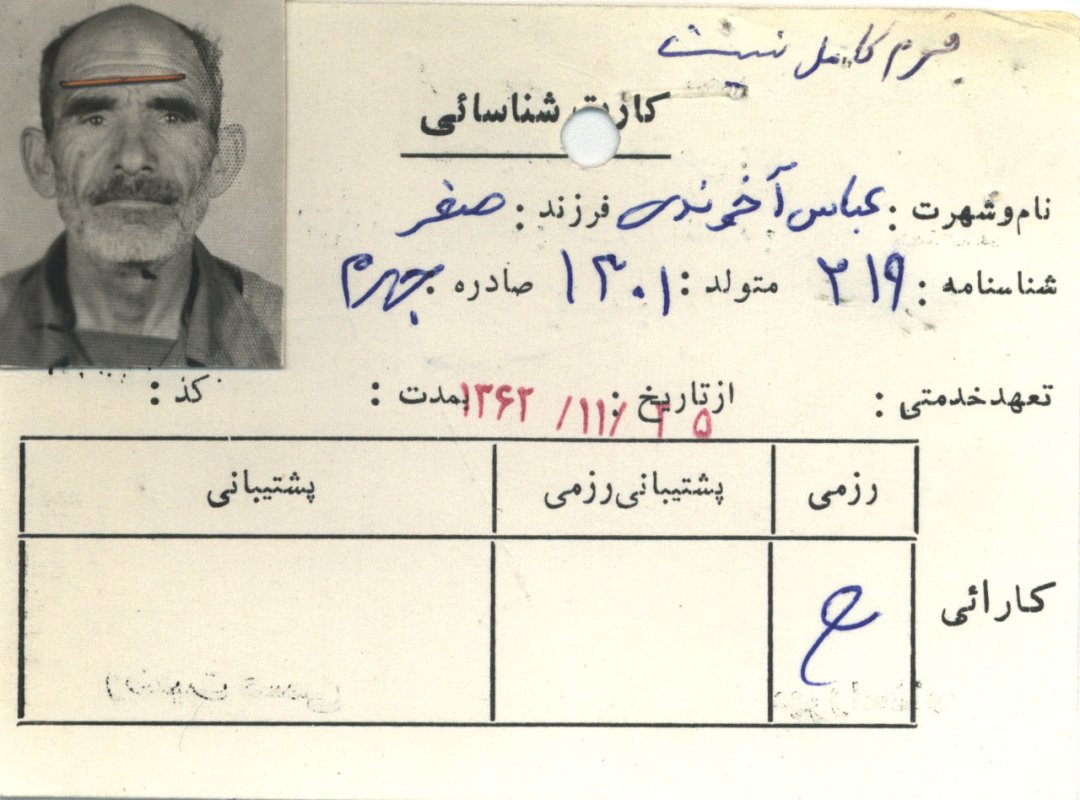 فرم کامل نیست
کارت شناسائی
نام و شهرت : عباس آخوندی فرزند : صفر
شناسنامه : ۲۱۹ متولد : ۱۳۰۱ صادره : جهرم
تعهد خدمتی : از تاریخ : ۲۵ /۱۱/ ۱۳۶۲ بمدت : کد :
رزمی پشتیبانی رزمی پشتیبانی
کارائی